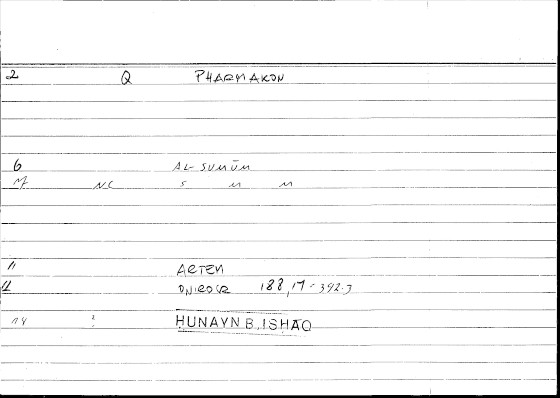 2 Q PHARMAKON
6 AL-SUMŪM
MF NC S M M
11 ARTEM
12 ONIROCR 188,17 - 392.7
14 ? HUNAYN B. ISHAQ